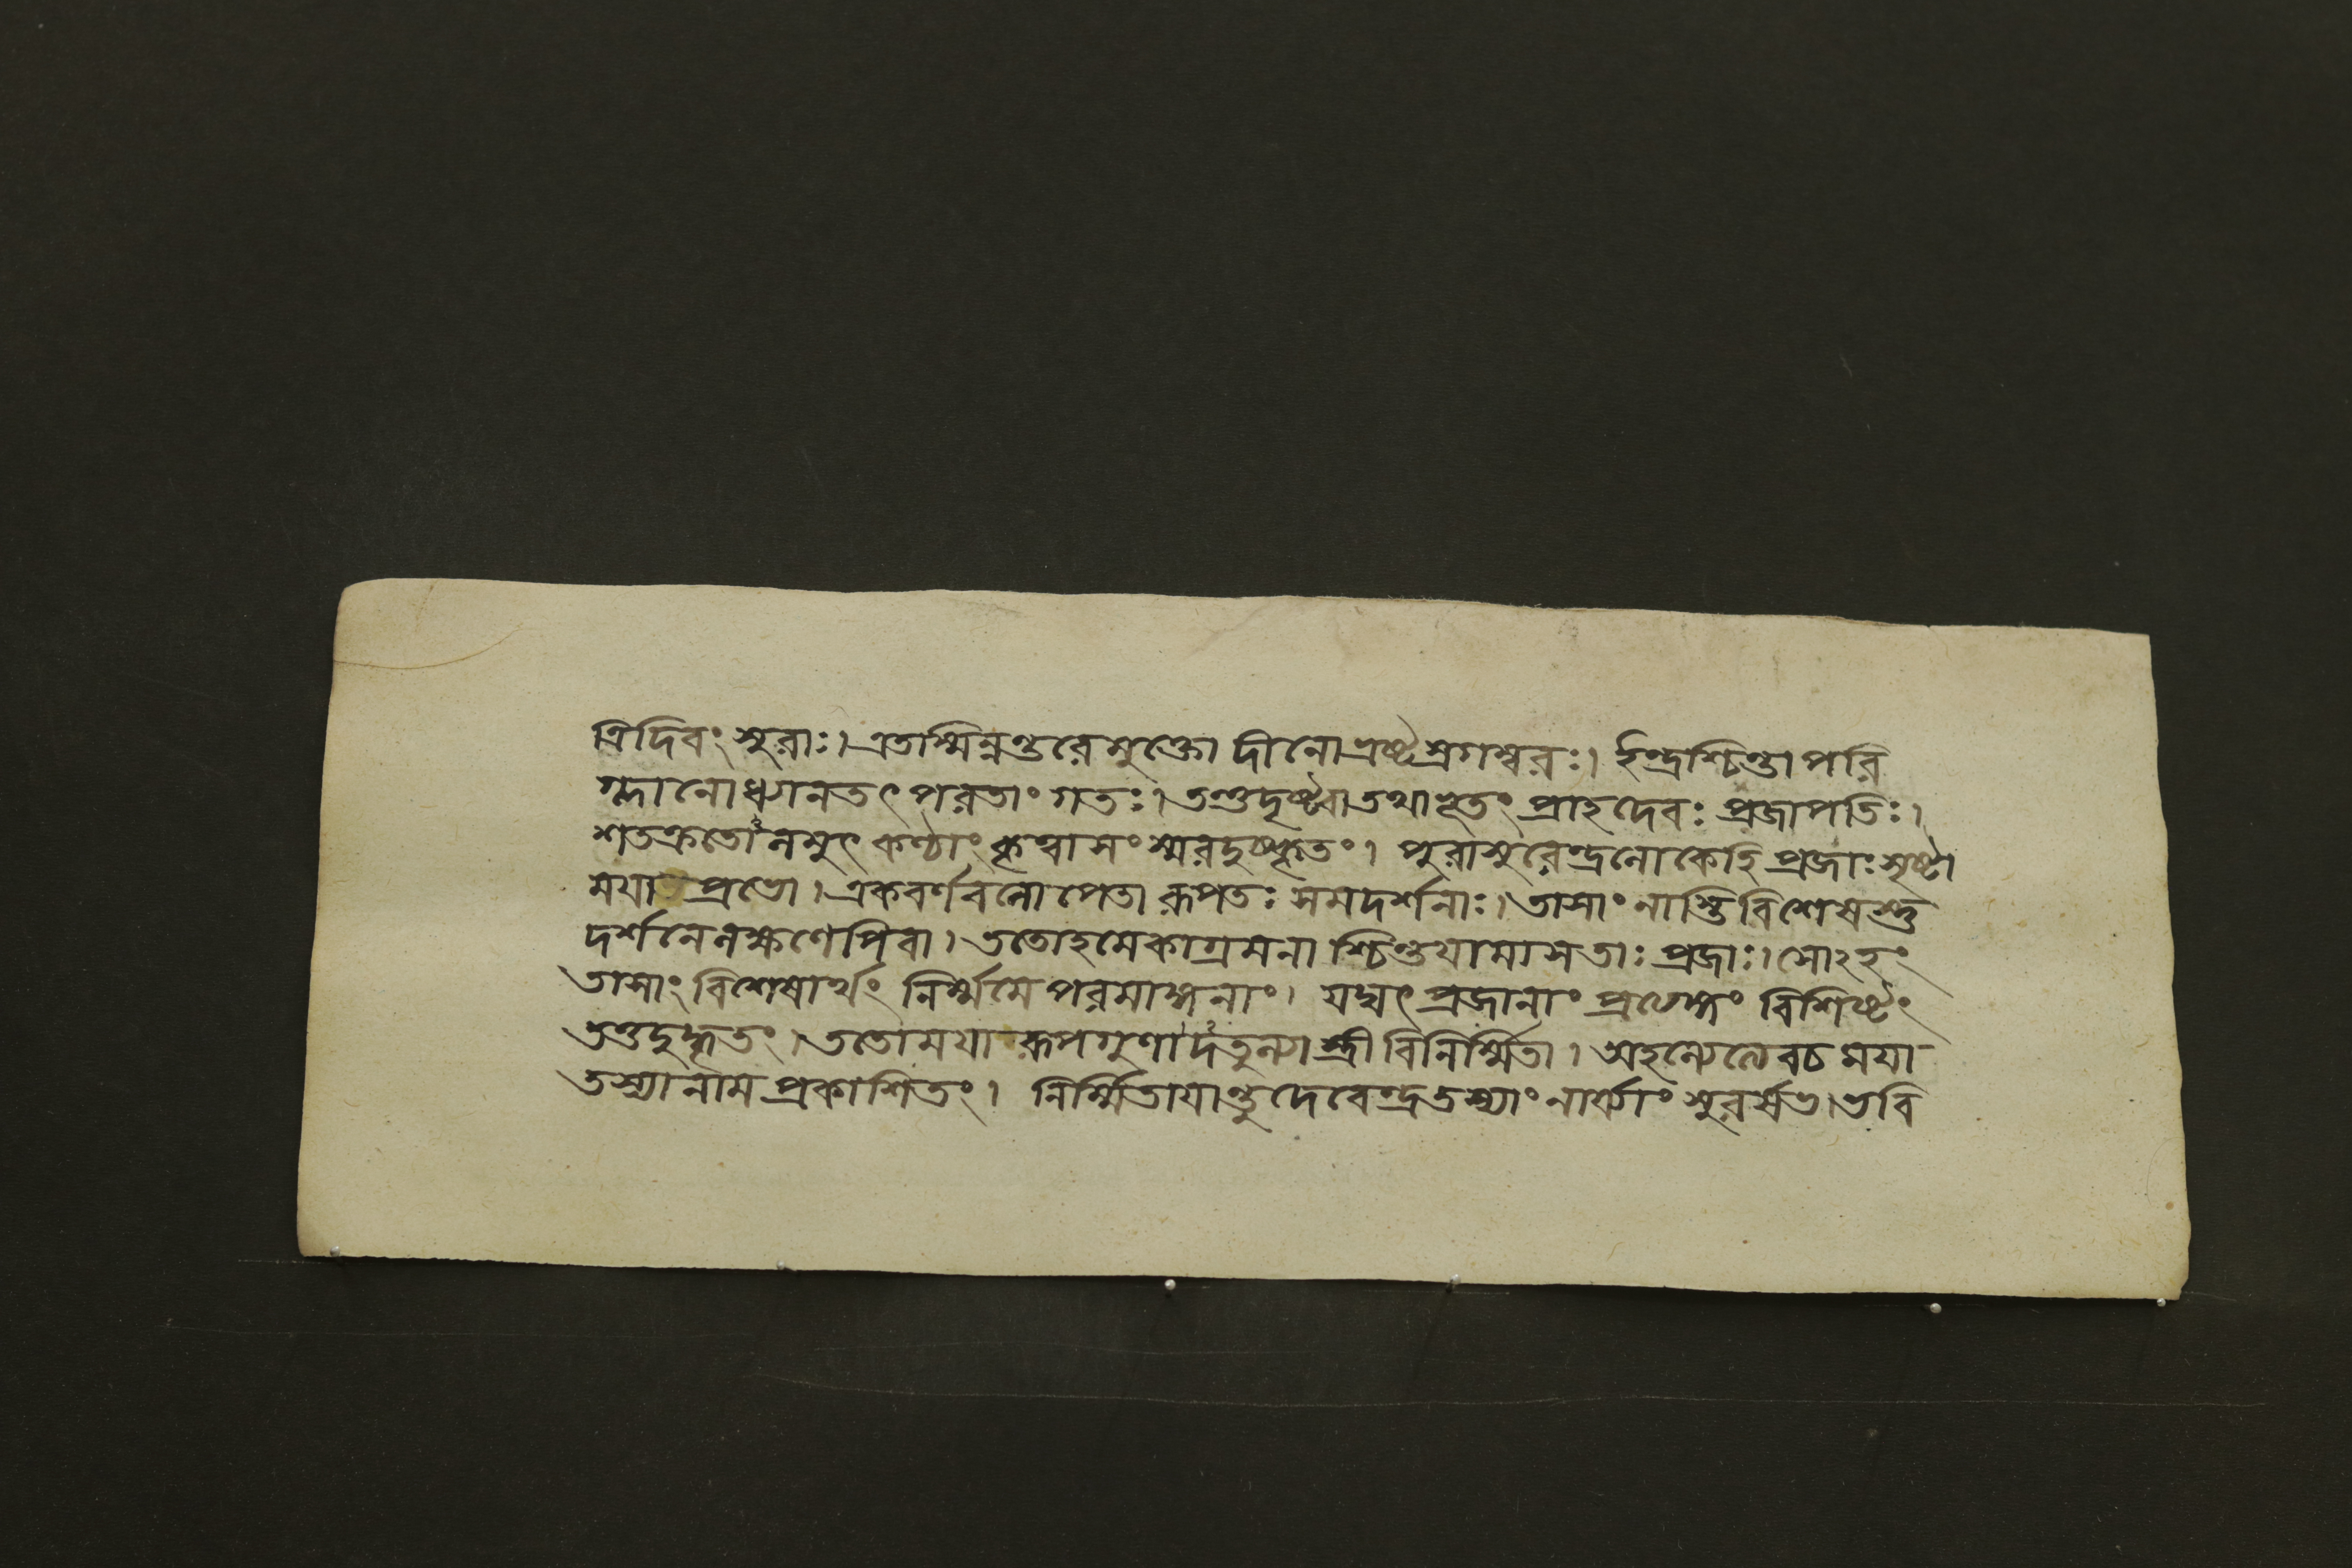 ত্রিদিবং সুরাঃ। এতস্মিন্নন্তরে মুক্তো দীনো ভ্রষ্টস্রগম্বরঃ। ইন্দ্রশ্চিন্তাপরি
গ্লানো ধ্যানতৎপরতাং গতঃ। তন্তু দৃষ্ট্বা তথাভূতং প্রাহ দেবঃ প্রজাপতিঃ।
শতক্রতো নমুৎকণ্ঠাং কৃত্বা সংস্মর দুষ্কৃতং। পুরা সুরেন্দ্র লোকে হি প্রজাঃ সৃষ্টা
ময়া প্রভো। একবর্ণবলোপেতা রূপতঃ সমদর্শনাঃ। তাসাং নাস্তি বিশেষস্তু
দর্শনে লক্ষণেপি বা। ততোহমেকাগ্রমনাশ্চিন্তয়ামাস তাঃ প্রজাঃ। সোঽহং
তাসাং বিশেষার্থং নির্ম্মমে পরমাত্মনাং। যদ্যৎ প্রজানাং প্রত্যঙ্গং বিশিষ্টং
তত্তদুদ্ধৃতং। ততো ময়া রূপগুণাদতুল্যা স্ত্রী বিনির্ম্মিতা। অহল্যেত্যেব চ ময়া
তস্যা নাম প্রকাশিতং। নির্ম্মিতায়ান্তু দেবেন্দ্র তস্যাং নার্য্যাং সুরর্ষভ। ভবি